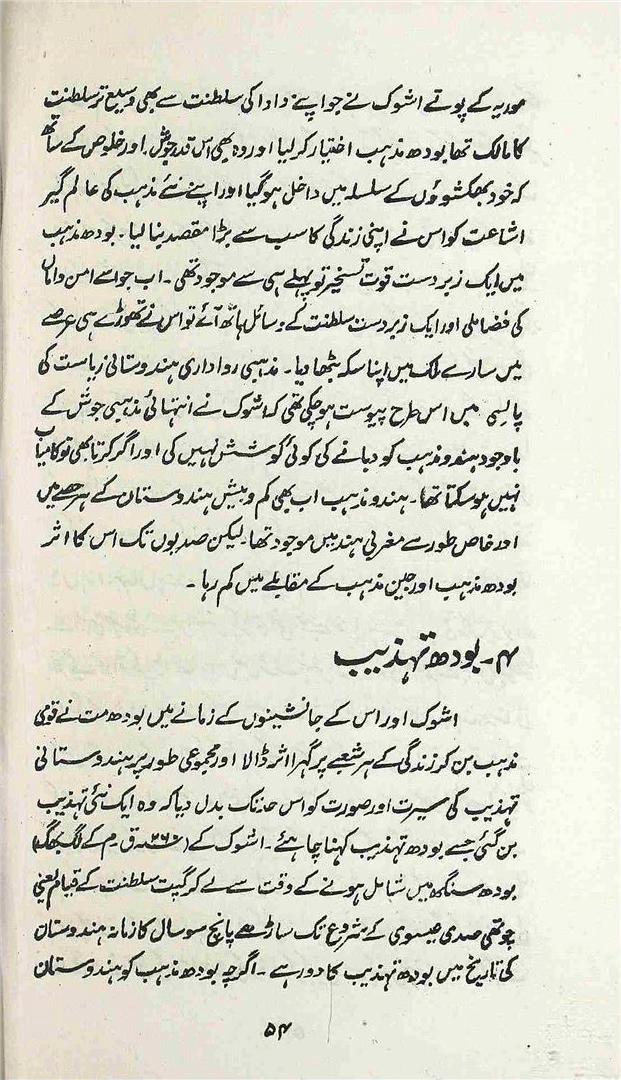 موریہ کے پوتے اشوک نے جو اپنے دادا کی سلطنت سے بھی وسیع تر سلطنت
کا مالک تھا بودھ مذہب اختیار کر لیا اور وہ بھی اس قدر جوش اور خلوص کے ساتھ
کہ خود بھکشوؤں کے سلسلہ میں داخل ہو گیا اور اپنے نئے مذہب کی عالم گیر
اشاعت کو اس نے اپنی زندگی کا سب سے بڑا مقصد بنا لیا۔ بودھ مذہب
میں ایک زبردست قوت تسخیر تو پہلے ہی سے موجود تھی۔ اب جو اسے امن و اماں
کی فضا ملی اور ایک زبردست سلطنت کے وسائل ہاتھ آئے تو اس نے تھوڑے ہی عرصے
میں سارے ملک میں اپنا سکہ بٹھا دیا۔ مذہبی رواداری ہندوستانی ریاست کی
پالیسی میں اس طرح پیوست ہو چکی تھی کہ اشوک نے انتہائی مذہبی جوش کے
باوجود ہندو مذہب کو دبانے کی کوئی کوشش نہیں کی اور اگر کرتا بھی تو کامیاب
نہیں ہو سکتا تھا۔ ہندو مذہب اب بھی کم و بیش ہندوستان کے ہر حصے میں
اور خاص طور سے مغربی ہند میں موجود تھا۔ لیکن صدیوں تک اس کا اثر
بودھ مذہب اور جین مذہب کے مقابلے میں کم رہا۔
۴۔ بودھ تہذیب
اشوک اور اس کے جانشینوں کے زمانے میں بودھ مت نے قومی
مذہب بن کر زندگی کے ہر شعبے پر گہرا اثر ڈالا اور مجموعی طور پر ہندوستانی
تہذیب کی سیرت اور صورت کو اس حد تک بدل دیا کہ وہ ایک نئی تہذیب
بن گئی جسے بودھ تہذیب کہنا چاہئے۔ اشوک کے (۲۶۰ ق۔م کے لگ بھگ)
بودھ سنگھ میں شامل ہونے کے وقت سے لے کر گپت سلطنت کے قیام یعنی
چوتھی صدی عیسوی کے شروع تک ساڑھے پانچ سو سال کا زمانہ ہندوستان
کی تاریخ میں بودھ تہذیب کا دور ہے۔ اگرچہ بودھ مذہب کو ہندوستان
۵۴